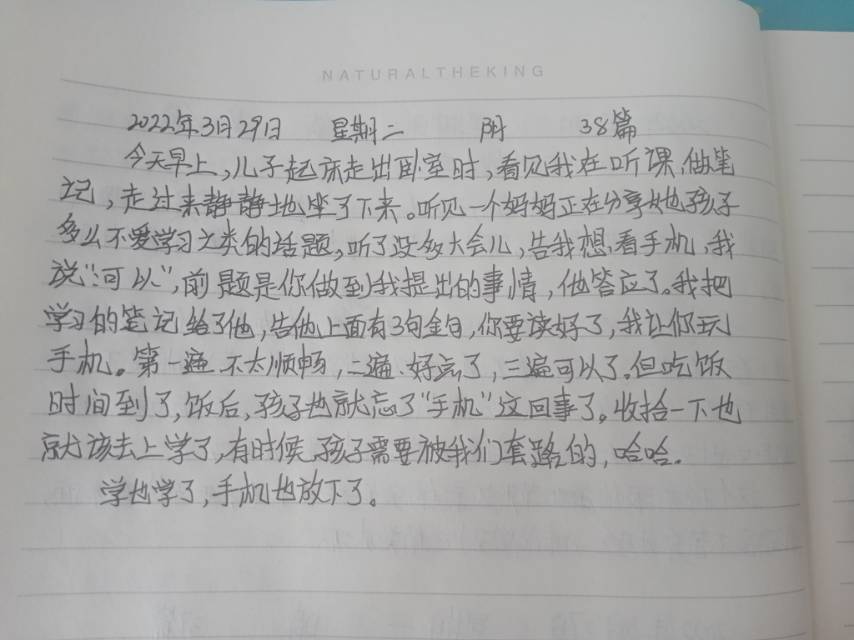 NATURALTHEKING
2022年3月29日 星期二 阴 38篇
今天早上,儿子起床走出卧室时,看见我在听课、做笔
记,走过来静静地坐了下来。听见一个妈妈正在分享她孩子
多么不爱学习之类的话题,听了没多大会儿,告我想看手机,我
说"可以",前题是你做到我提出的事情,他答应了。我把
学习的笔记给了他,告他上面有3句金句,你要读好了,我让你玩
手机。第一遍不太顺畅,二遍、好点了,三遍可以了。但吃饭
时间到了,饭后,孩子也就忘了"手机"这回事了。收拾一下也
就该去上学了,有时候孩子需要被我们套路的,哈哈.
学也学了,手机也放下了。